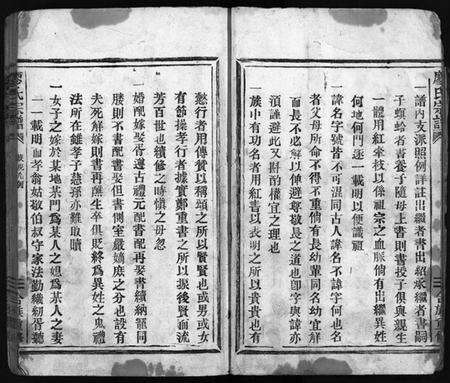 一譜內支派照例詳註出繼者書出紹承繼者書嗣
子螟蛉者書養子隨母上書則書授子俱與親生
一體用紅牽枝以係祖宗之血脈倘有出繼異姓
何地何門逐一載明以便識祖
一諱名字號皆不可混同古人諱名不諱字何也名
者父母所命不得不重倘有長幼輩同名幼宜解
而長不必解以伸避尊敬長之道也卽字與諱亦
預謹避此又斟酌權宜之理也
一族中有功名者用紅書以表明之所以貴貴也有
懿行者用傳贊以稱頌之所以賢賢也或男或女
有節操孝行者據實鄭重書之所以振後賢而流
芳百世也續修之時愼之毋忽
一婚配嫁娶皆遵古禮元配書配再娶書續納寵同
媵則不書配書娶但書側室嚴嫡庶之分也設有
夫死解嫁則書再醮生卒俱貶終為異姓之鬼禮
法所在雖孝子慈孫亦難取贖
一女子之嫁於某地某門為某人之媳為某人之妻
一一載明而孝翁姑敬伯叔守家法勤織紉皆聽